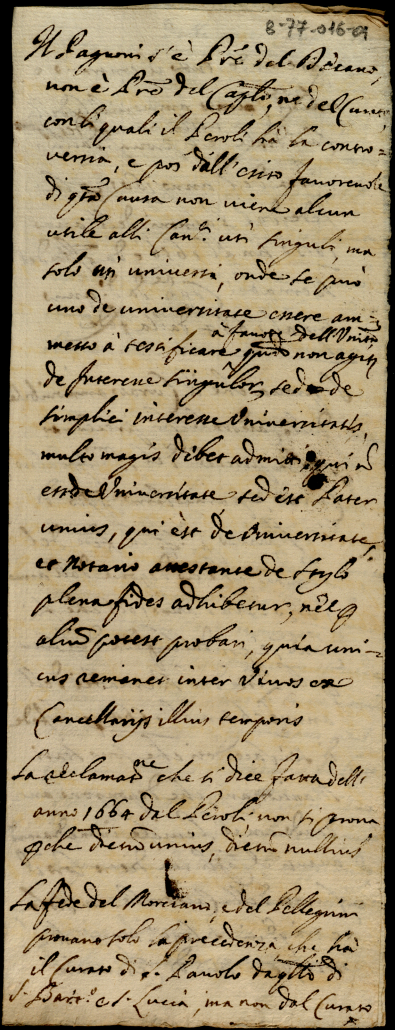 8-77-016-9
Il Pagnoni s'è Prẽ del Decano,
non è Prẽ del Caplo, ne del Curato
con li quali il Peroli hà la contro=
versia, e poi dall'esito favorevole
di qta Causa non viene alcun
utile alli Canci uti singuli, ma
solo uti universi, onde se può
uno de universitate essere am=
messo à testificare à favor dell'Univtà qndo non agitr
de Interesse singulor, sed de
simplici interesse Universitatis,
multo magis debet admitti, qui nõ
est de Universitate sed est Pater
unius, qui est de Universitate,
et Notario attestante de stylo
plena fides adhibetur, nec p
aliũ potest probari, quia uni=
cus remanet inter vivos ex
Cancellarijs illius temporis
La reclamatne che si dice fatta dell'
anno 1664 dal Peroli non si prova
pche dictum unius, dictum nullius
La fede del Morciano, e del Pellegrini
provano solo la precedenza che hà
il Curato di S. Pavolo da qllo di
S. Barto. e S. Lucia, ma non dal Curato